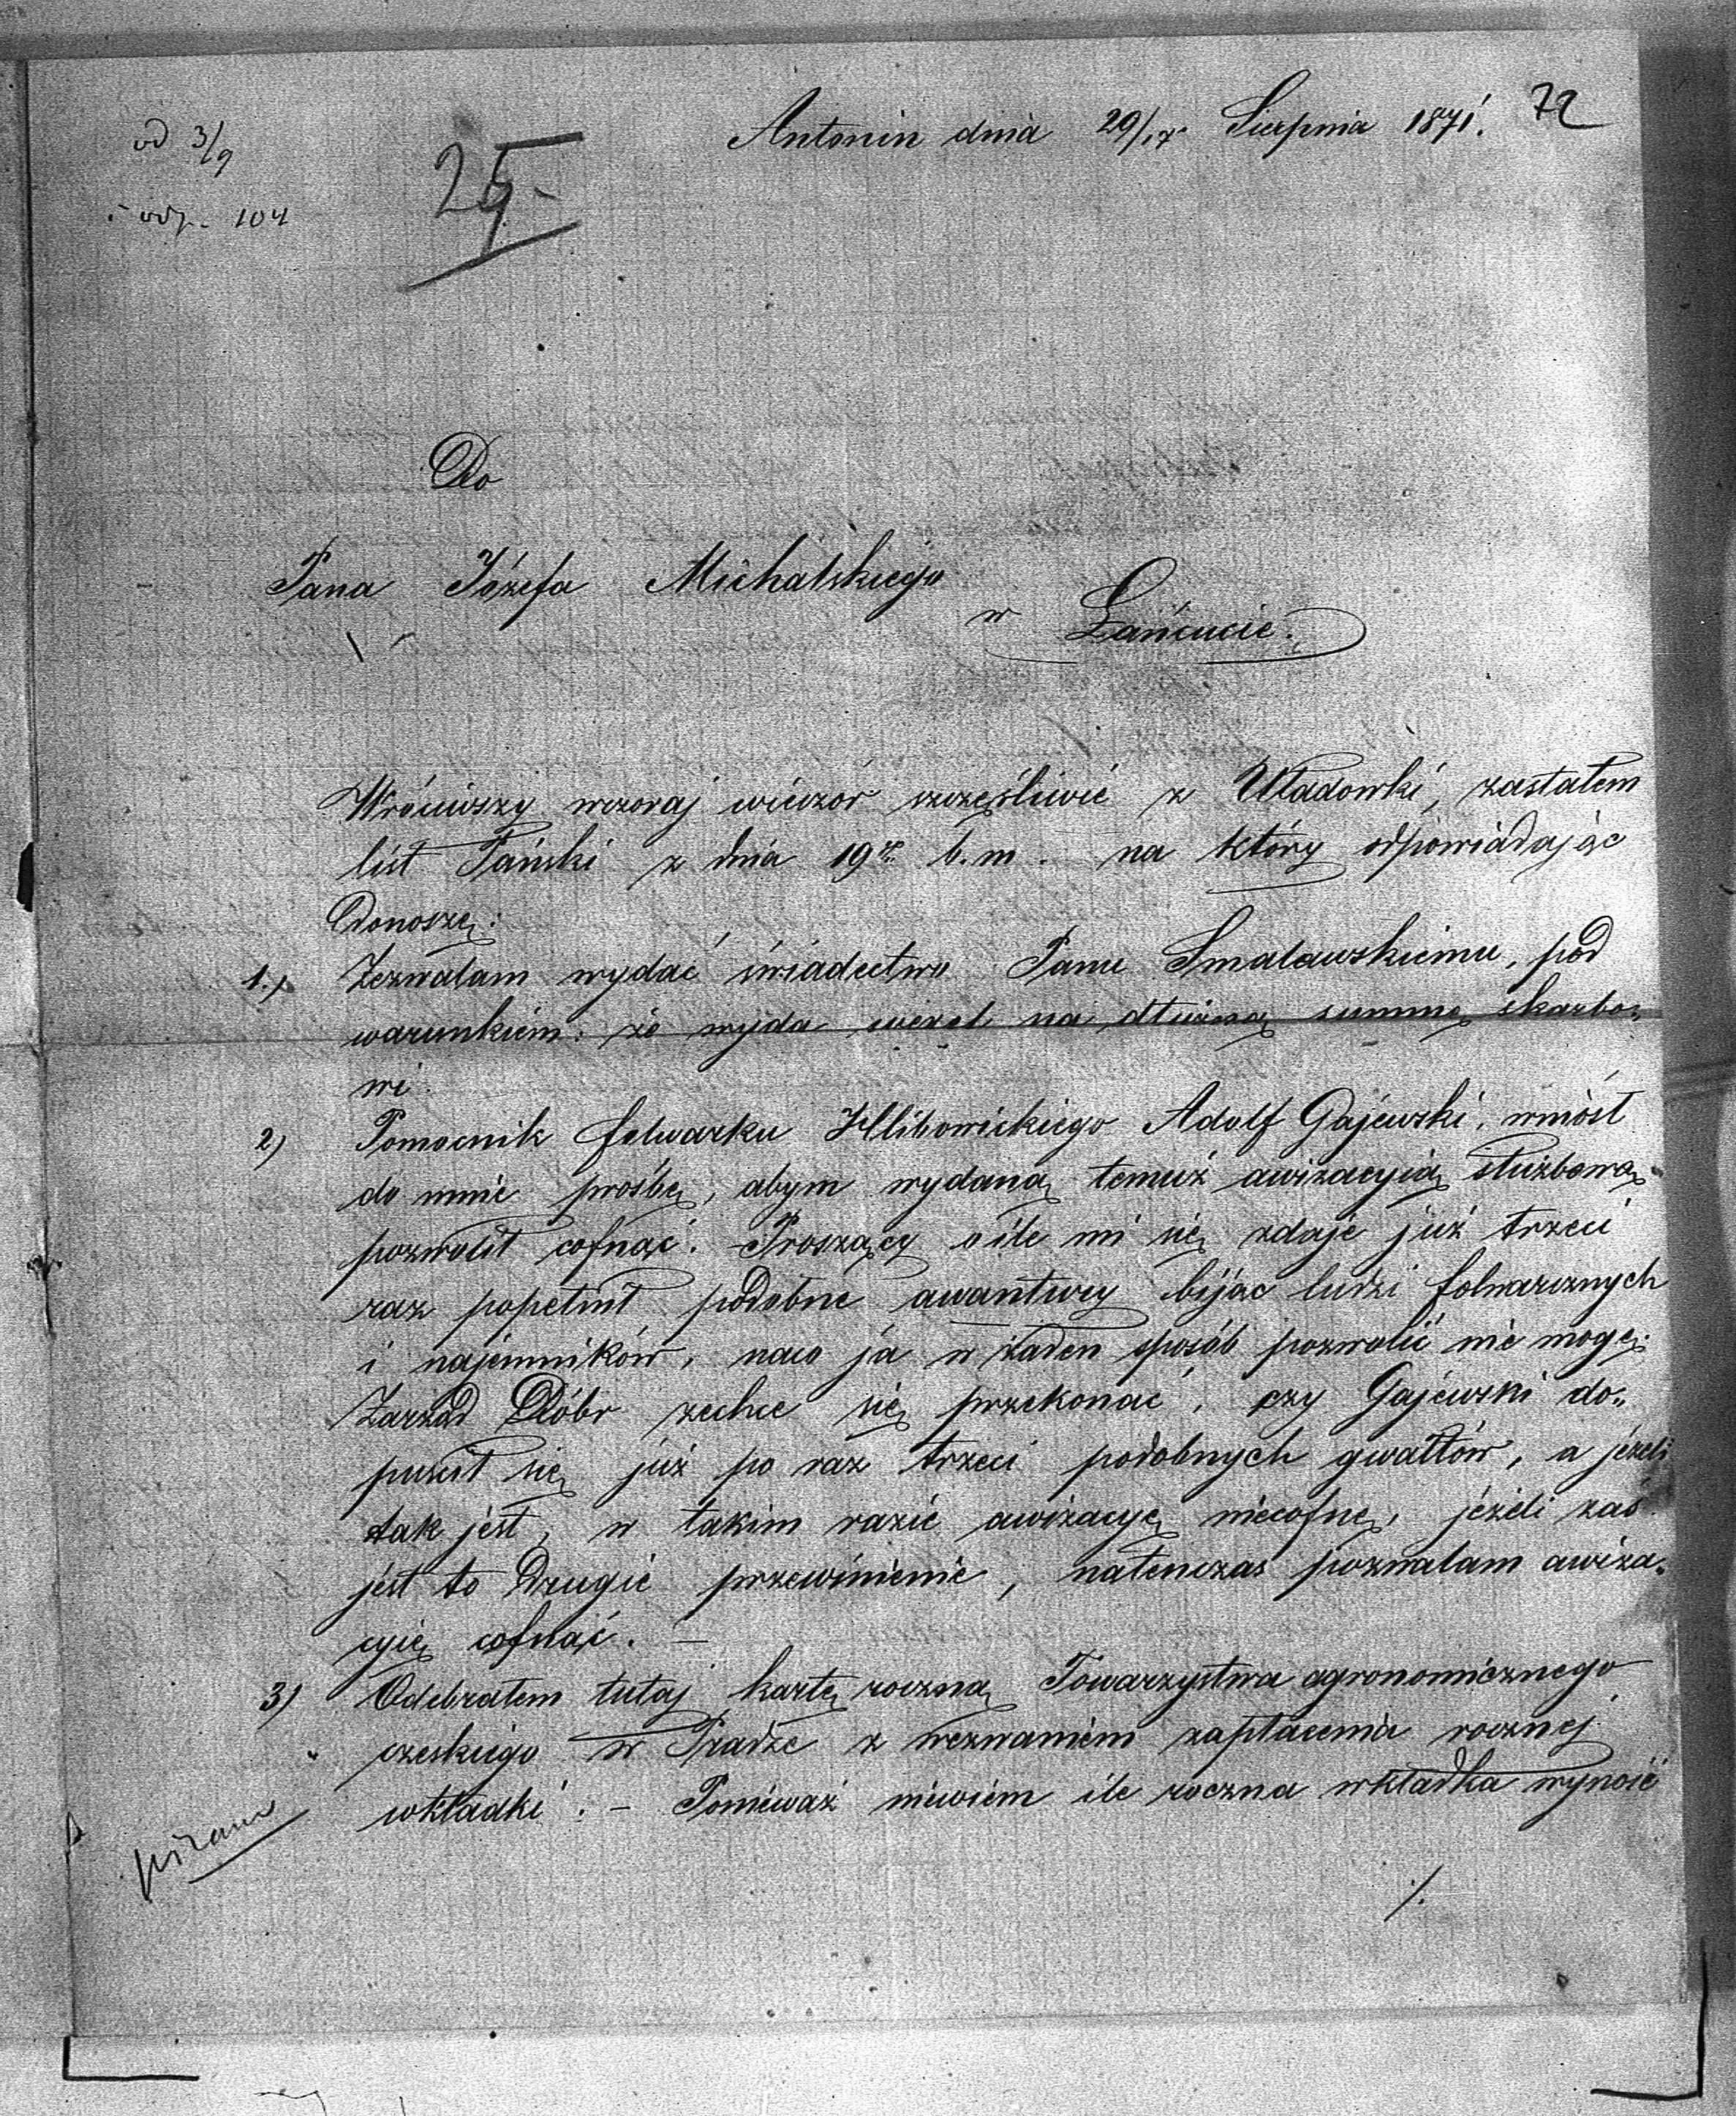 Antonin dnia 29/17. Sierpnia 1871. 72
od 3/9
odp. 104
25
Do
Pana Józefa Michalskiego
w Łańcucie.
Wróciwszy wczoraj wieczór szczęśliwie z Uładowki, zastałem
list Pański z dnia 19go b.m. na który odpowiadając
Donoszę:
1.) Zezwalam wydać świadectwo Panu Smalawskiemu, pod
warunkiem: że wyda wexel na dłużną summę skarbo„
wi.
2) Pomocnik folwarku Hlibowickiego Adolf Gajewski, wniósł
do mnie prośbę, abym wydaną temuż awizacyią służbową
pozwolił cofnąć. Proszący o ile mi się zdaje już trzeci
raz popełnił podobne awantury bijąc ludzi folwarcznych
i najemników, naco ja w żaden sposób pozwolić nie mogę.
Zarząd Dóbr zechce się przekonać, czy Gajewski do„
puścił się już po raz trzeci podobnych gwałtów, a jeżeli
tak jest, w takim razie awizacyę niecofnę, jeżeli zaś
jest to Drugie przewinienie, natenczas pozwalam awiza„
cyię cofnąć. —
3) Odebrałem tutaj kartę roczną Towarzystwa agronomicznego
czeskiego w Pradze z wezwaniem zapłacenia rocznej
wkładki. – Ponieważ niewiem ile roczna wkładka wynosić
pisano
./.